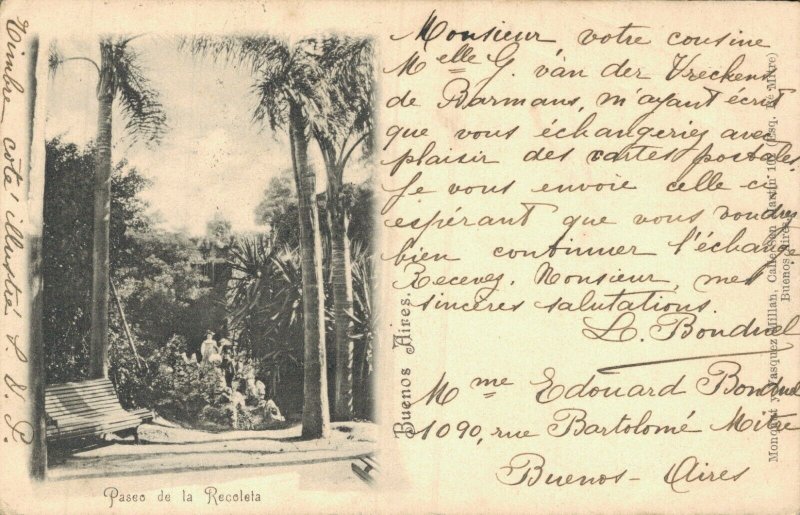 Monsieur votre cousine
Melle G. van der Vreckens
de Barmans, m'ayant écrit
que vous échangeriez avec
plaisir des cartes postales,
Je vous envoie celle-ci
espérant que vous voudrez
bien continuer l'échange
Recevez, Monsieur, mes
sincères salutations.
L. Bonduel
Mme Edouard Bonduel
1090, rue Bartolomé Mitre
Buenos-Aires
Timbre côté illustré S. V. P.
Buenos Aires.
Paseo de la Recoleta
Vasquez Millan, Calle San Martin (Esq. Bé Mitre)
Buenos Aires